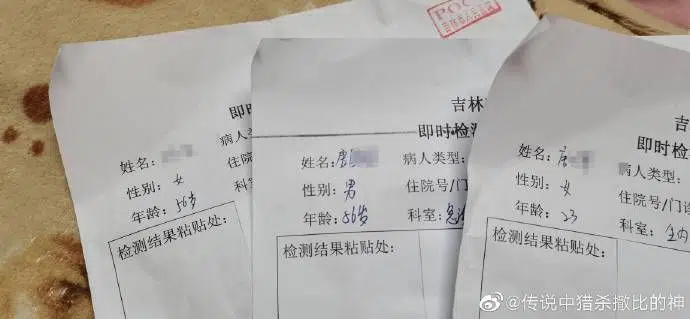 POC
吉林
即时检
姓名:
病人类
性别:女
住院
年龄:56岁
科室
检测结果粘贴处:
吉林
即时检测
姓名:唐
病人类型:
性别:男
住院号/门
年龄:56岁
科室:急
检测结果粘贴处:
吉
即时检
姓名:唐
病人类型:
性别:女
住院号/门诊
年龄:23
科室:
检测结果粘贴处:
@传说中猎杀撒比的神